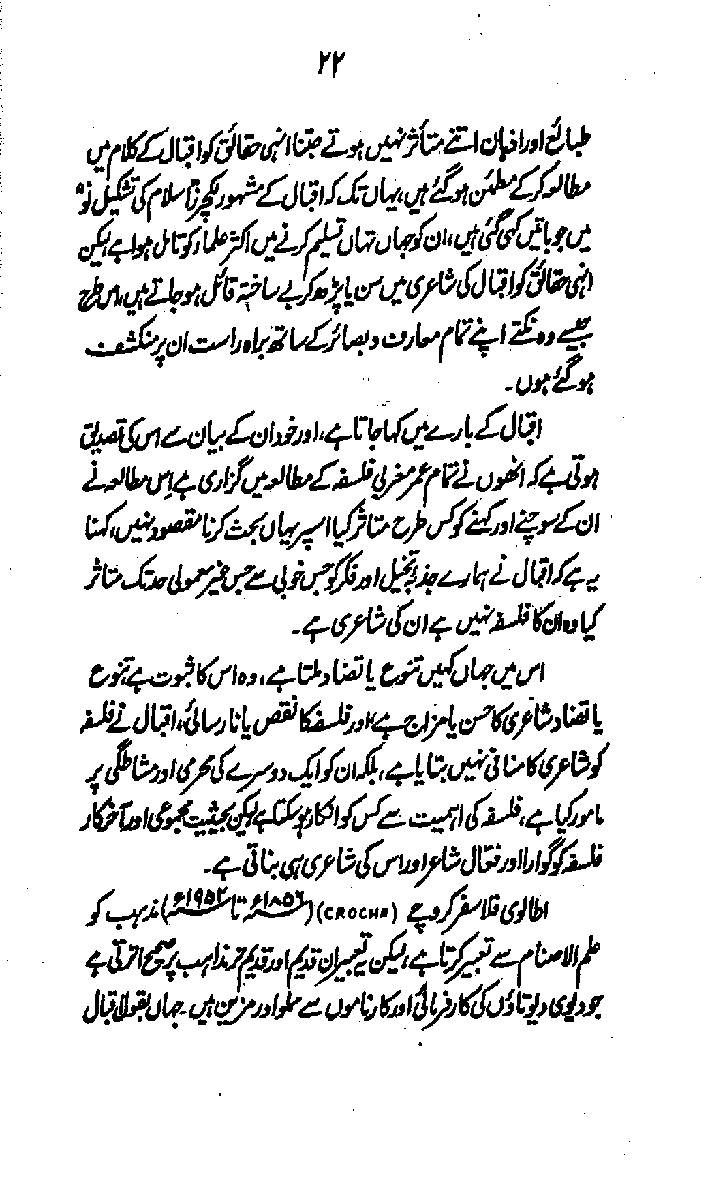 ۲۲
طبائع اور اذہان اتنے متأثر نہیں ہوتے جتنا انہی حقائق کو اقبال کے کلام میں
مطالعہ کر کے مطمئن ہو گئے ہیں، یہاں تک کہ اقبال کے مشہور لکچرز "اسلام کی تشکیل نو"
میں جو باتیں کہی گئی ہیں، ان کو جہاں تہاں تسلیم کرنے میں اکثر علماء کو تامل ہوا ہے لیکن
انہی حقائق کو اقبال کی شاعری میں سن یا پڑھ کر بے ساختہ قائل ہو جاتے ہیں، اس طرح
جیسے وہ نکتے اپنے تمام معارف و بصائر کے ساتھ براہ راست ان پر منکشف
ہو گئے ہوں۔
اقبال کے بارے میں کہا جاتا ہے، اور خود ان کے بیان سے اس کی تصدیق
ہوتی ہے کہ انھوں نے تمام عمر مغربی فلسفہ کے مطالعہ میں گزاری ہے اس مطالعہ نے
ان کے سوچنے اور کہنے کو کس طرح متاثر کیا اس پر یہاں بحث کرنا مقصود نہیں، کہنا
یہ ہے کہ اقبال نے ہمارے جذبہ تخیل اور فکر کو جس خوبی سے جس غیر معمولی حد تک متاثر
کیا وہ ان کا فلسفہ نہیں ہے ان کی شاعری ہے۔
اس میں جہاں کہیں تنوع یا تضاد ملتا ہے، وہ اس کا ثبوت ہے تنوع
یا تضاد شاعری کا حسن یا مزاج ہے، اور فلسفہ کا نقص یا نارسائی، اقبال نے فلسفہ
کو شاعری کا منافی نہیں بتایا ہے، بلکہ ان کو ایک دوسرے کی محرمی اور مشاطگی پر
مامور کیا ہے، فلسفہ کی اہمیت سے کس کو انکار ہو سکتا ہے لیکن بحیثیت مجموعی اور آخر کار
فلسفہ کو گوارا اور فعال شاعر اور اس کی شاعری ہی بناتی ہے۔
اطالوی فلاسفر کروچے (CROCHE) (۱۸۵۶ء تا ۱۹۵۲ء) مذہب کو
علم الاصنام سے تعبیر کرتا ہے، لیکن یہ تعبیر ان قدیم اور قدیم تر مذاہب پر صحیح اترتی ہے
جو دیوی دیوتاؤں کی کار فرمائی اور کارناموں سے مملو اور مزین ہیں۔ جہاں بقول اقبال